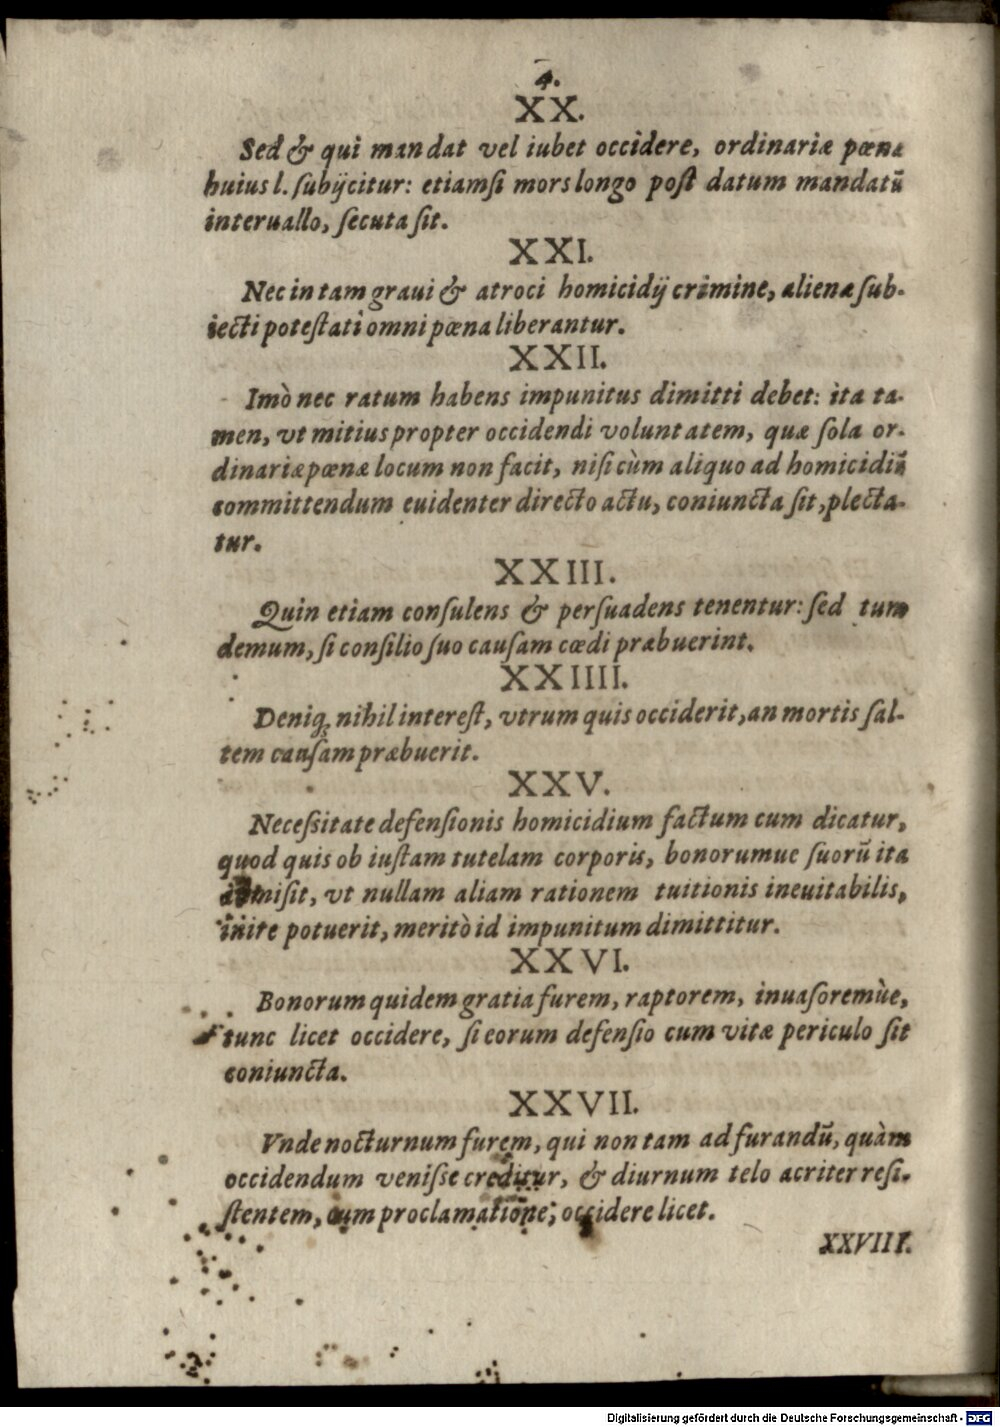 4.
XX.
Sed & qui mandat vel iubet occidere, ordinariæ pœnæ
huius l. ſubijcitur: etiamſi mors longo poſt datum mandatũ
interuallo, ſecuta ſit.
XXI.
Nec in tam graui & atroci homicidij crimine, alienæ ſub-
iecti poteſtati omni pœna liberantur.
XXII.
Imò nec ratum habens impunitus dimitti debet: ita ta-
men, vt mitius propter occidendi voluntatem, quæ ſola or-
dinariæ pœnæ locum non facit, niſi cùm aliquo ad homicidiũ
committendum euidenter directo actu, coniuncta ſit, plecta-
tur.
XXIII.
Quin etiam conſulens & perſuadens tenentur: ſed tum
demum, ſi conſilio ſuo cauſam cœdi præbuerint.
XXIIII.
Deniq; nihil intereſt, vtrum quis occiderit, an mortis ſal-
tem cauſam præbuerit.
XXV.
Neceſsitate defenſionis homicidium factum cum dicatur,
quod quis ob iuſtam tutelam corporis, bonorumue ſuorũ ita
vt nullam aliam rationem tuitionis ineuitabilis,
inire potuerit, meritò id impunitum dimittitur.
XXVI.
Bonorum quidem gratia furem, raptorem, inuaſoremùe,
tunc licet occidere, ſi eorum defenſio cum vitæ periculo ſit
coniuncta.
XXVII.
Vnde nocturnum furem, qui non tam ad furandũ, quàm
occidendum veniſſe creditur, & diurnum telo acriter reſi-
ſtentem, cum proclamatione, occidere licet.
XXVIII.
Digitalisierung gefördert durch die Deutsche Forschungsgemeinschaft - DFG